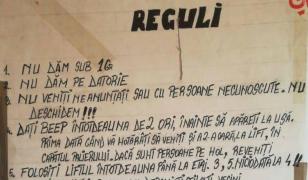 REGULI
1. NU DĂM SUB 1G
2. NU DĂM PE DATORIE
3 NU VENIȚI NEANUNȚAȚI SAU CU PERSOANE NECUNOSCUTE. NU
DESCHIDEM!!!
4 DAȚI BEEP ÎNTOTDEAUNA DE 2 ORI, ÎNAINTE SĂ APĂREȚI LA UȘĂ.
PRIMA DATĂ CÂND VĂ HOTĂRÂȚI SĂ VENIȚI ȘI A 2-A OARĂ LA LIFT, ÎN
DACĂ SUNT PERSOANE PE HOL, REVENIȚI
5. FOLOSIȚI LIFTUL ÎNTOTDEAUNA PÂNĂ LA ETAJ. 3, 5. NICIODATĂ LA 4